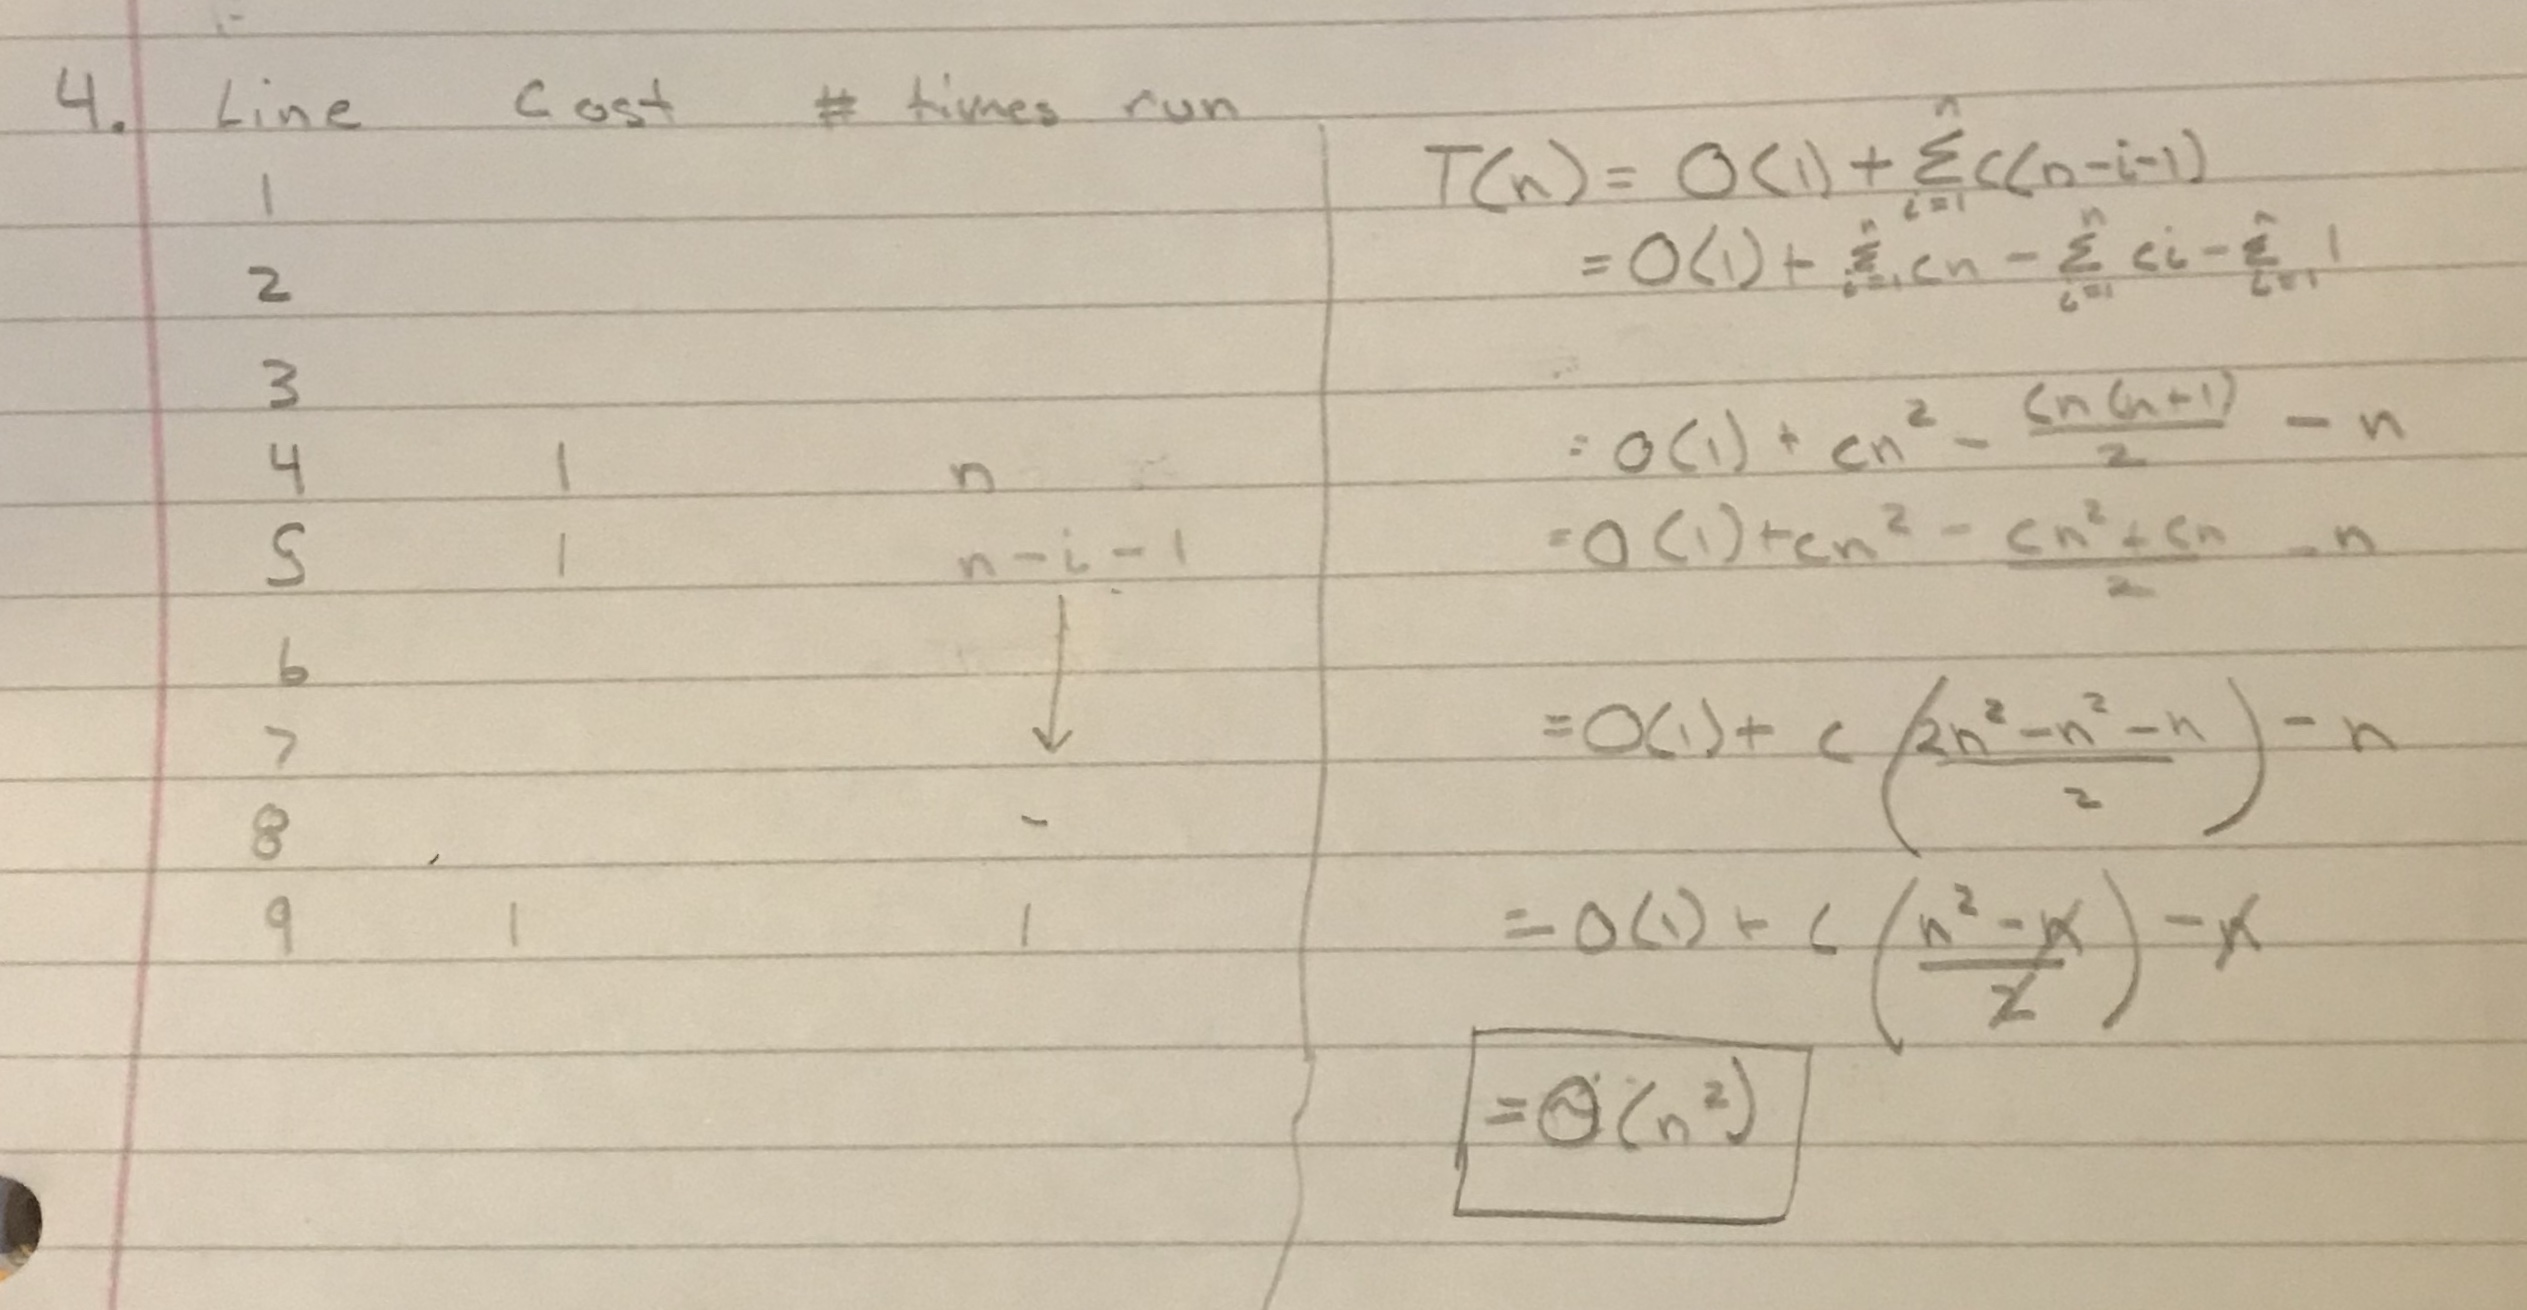 4. Line Cost # times run
1
2
3
4 1 n
5 1 n-i-1
6
7
8 -
9 1 1
T(n) = O(1) + Σ_{i=1}^{n} c(n-i-1)
= O(1) + Σ_{i=1}^{n} cn - Σ_{i=1}^{n} ci - Σ_{i=1}^{n} 1
= O(1) + cn² - cn(n+1)/2 - n
= O(1) + cn² - (cn²+cn)/2 - n
= O(1) + c((2n²-n²-n)/2) - n
= O(1) + c((n²-n)/2) - n
= Θ(n²)